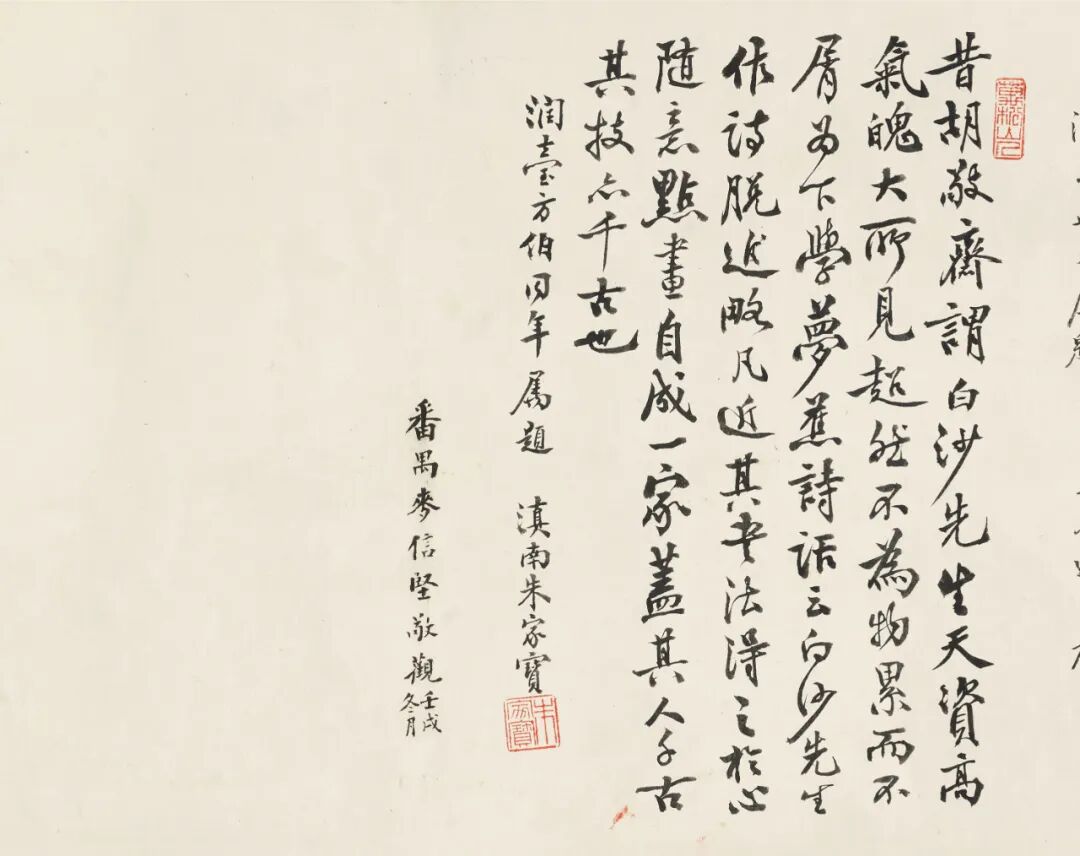 昔胡敬齋謂白沙先生天資高
氣魄大所見超然不為物累而不
屑為下學夢蕉詩話云白沙先生
作詩脱近略凡近其書法得之於心
随意點畫自成一家蓋其人千古
其技亦千古也
润臺方伯同年屬題
滇南朱家寶
朱家寶
番禺麥信堅敬觀壬戌
冬月